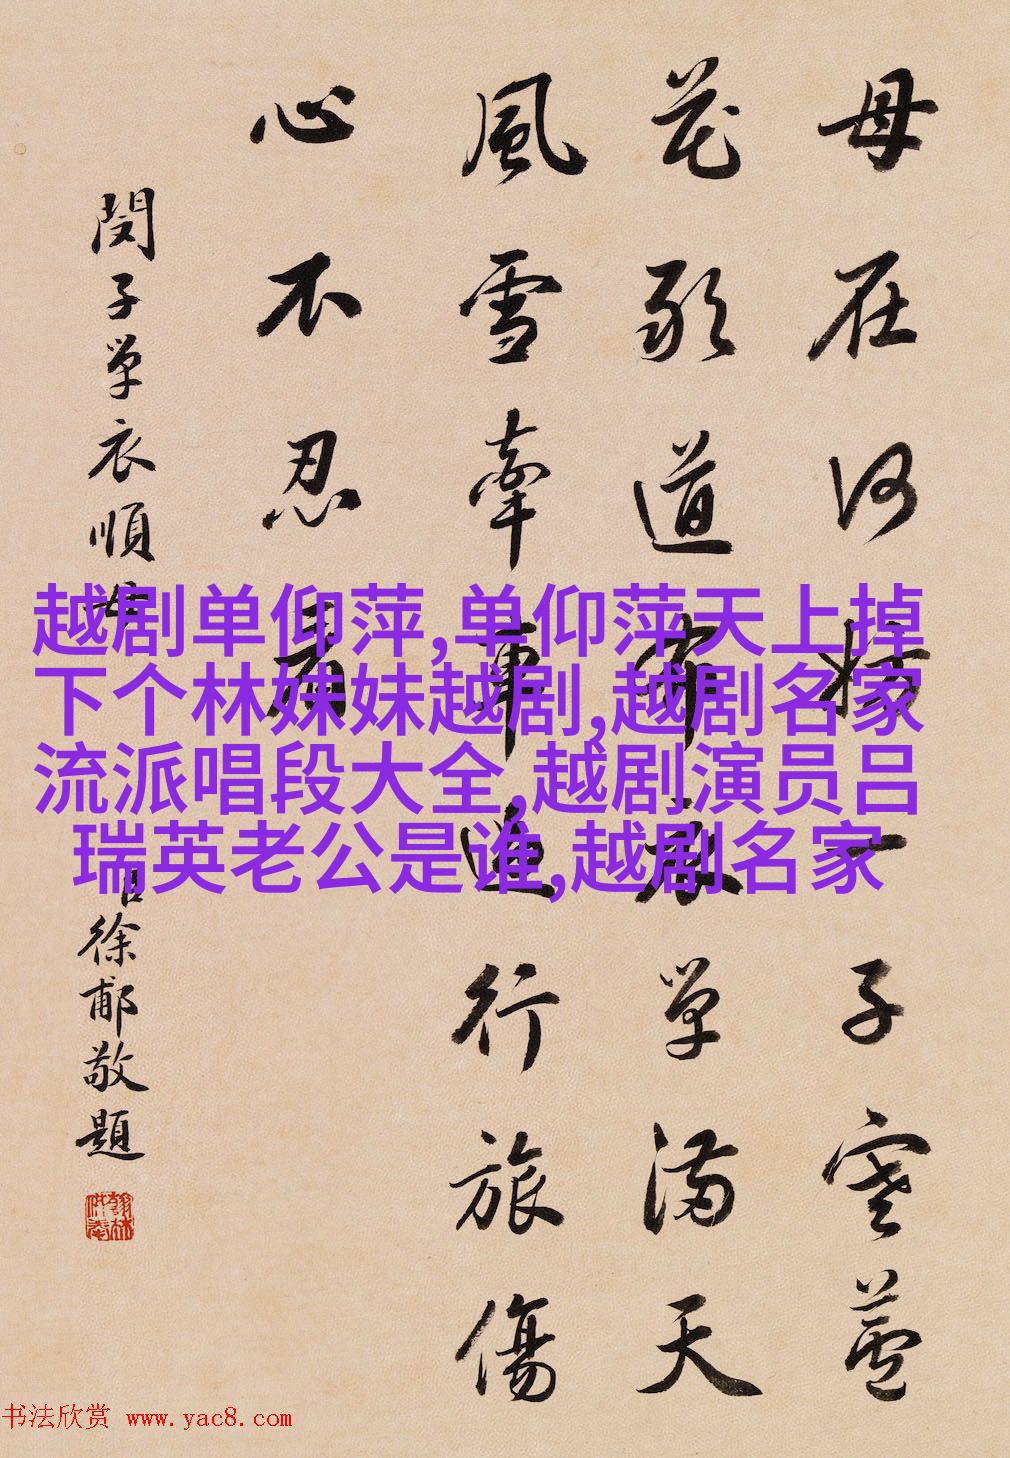 母在何妨一子寒蘆
花歌道康單滿天
風雪牽車進行旅傷
心不忍看
閔子單衣順母
臣徐郙敬題
越剧单仰萍,单仰萍天上掉
下个林妹妹越剧,越剧名家
流派唱段大全,越剧演员吕
瑞英老公是谁,越剧名家
书法欣赏 www.yac8.com